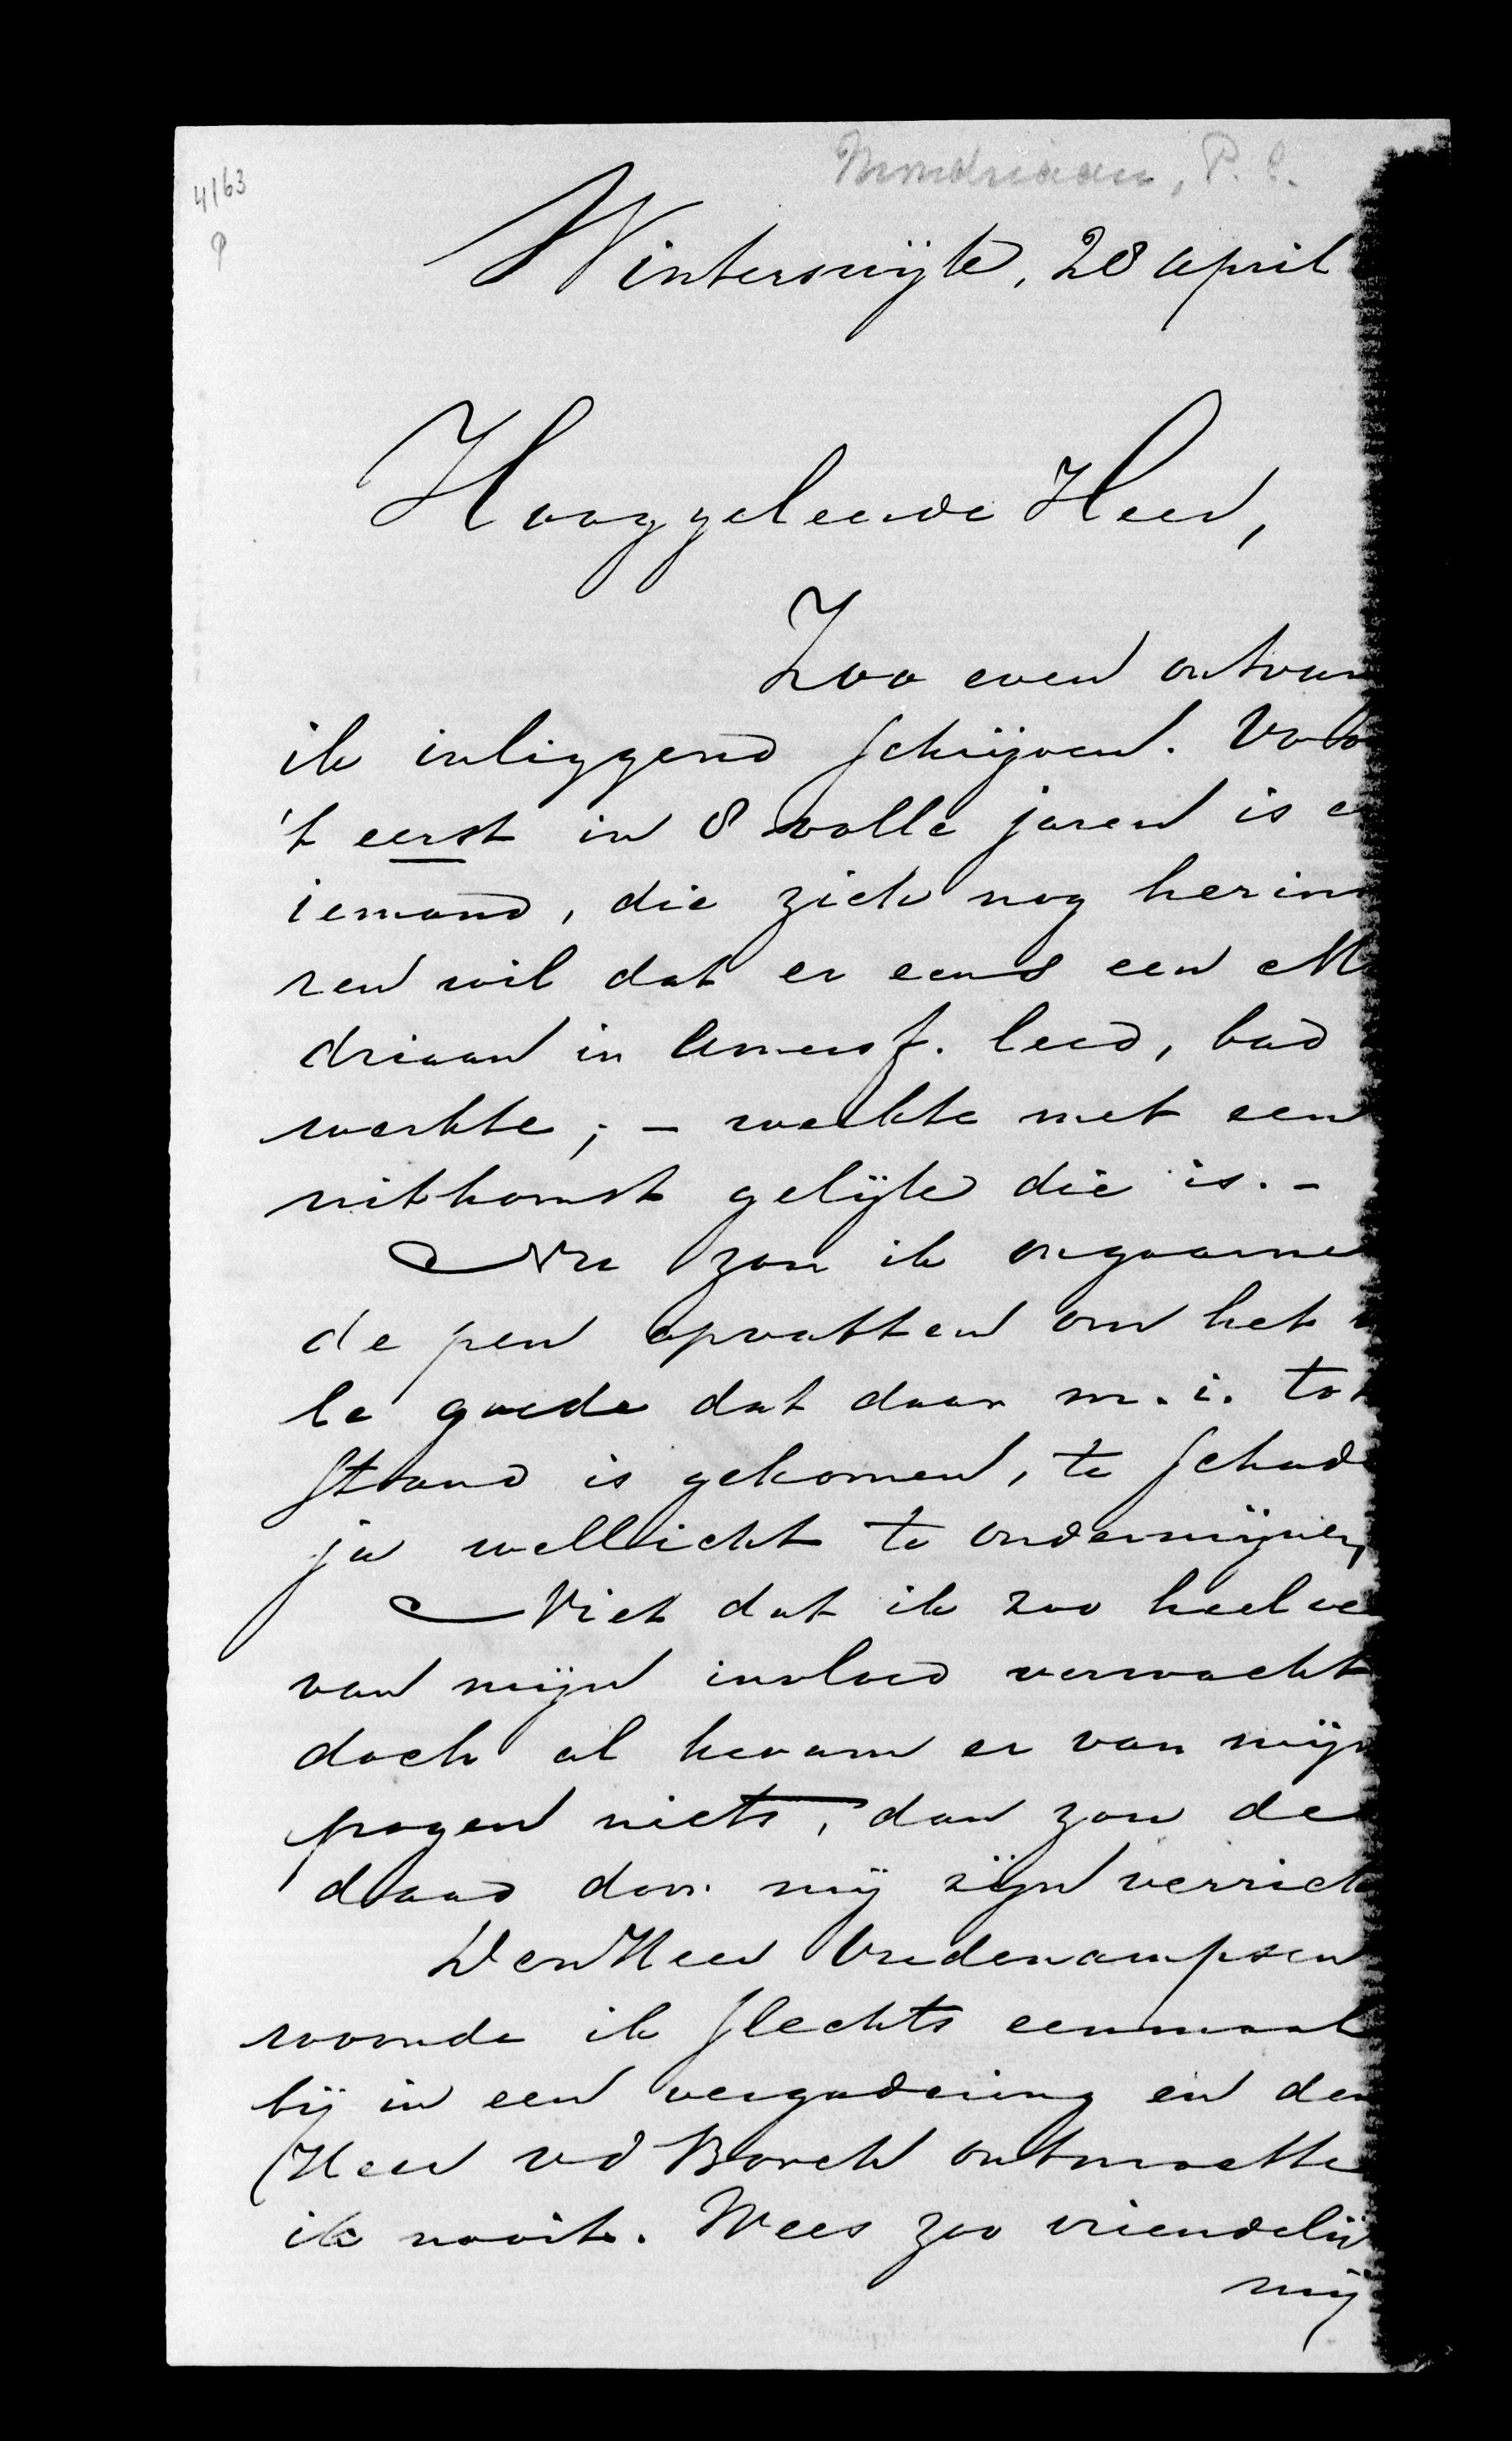 Mondriaan, P. C.
4163
P
Winterswijk, 28 April
Hooggeleerde Heer,
Zoo even ontvan
ik inliggend schrijven. Voor
't eerst in 8 volle jaren is e
iemand, die zich nog herin
ren wil dat er eens een M
driaan in Amersf. leed, bad
werkte; – werkte met een
uitkomst gelijk die is. –
Nu zou ik ongaarne
de pen opvatten om het
le goede dat daar m. i. tot
stand is gekomen, te schade
ja wellicht te ondermijnen,
Niet dat ik zoo heel vee
van mijn invloed verwacht
doch al kwam er van mijn
pogen niets, dan zou de
daad door mij zijn verrich
Den Heer Vredenampsen
woonde ik slechts eenmaal
bij in een vergadering en den
Heer vd Borch ontmoette
ik nooit. Wees zoo vriendelij
mij